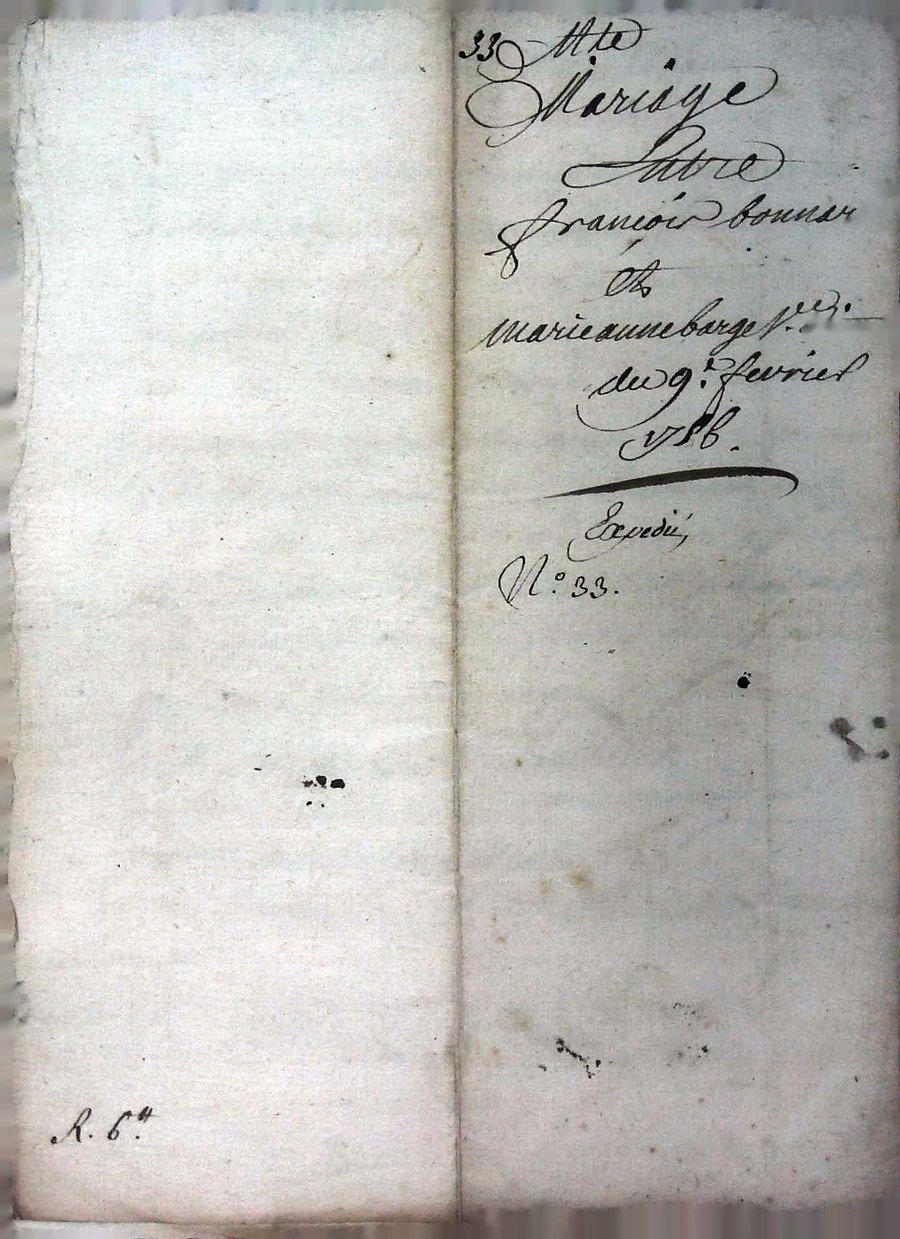 33 Mte
Mariage
Entre
françois bonnar
Et
marieanne barge
du 9.e fevrier
1786.
Expedié,
N.o 33.
R. 6.tt